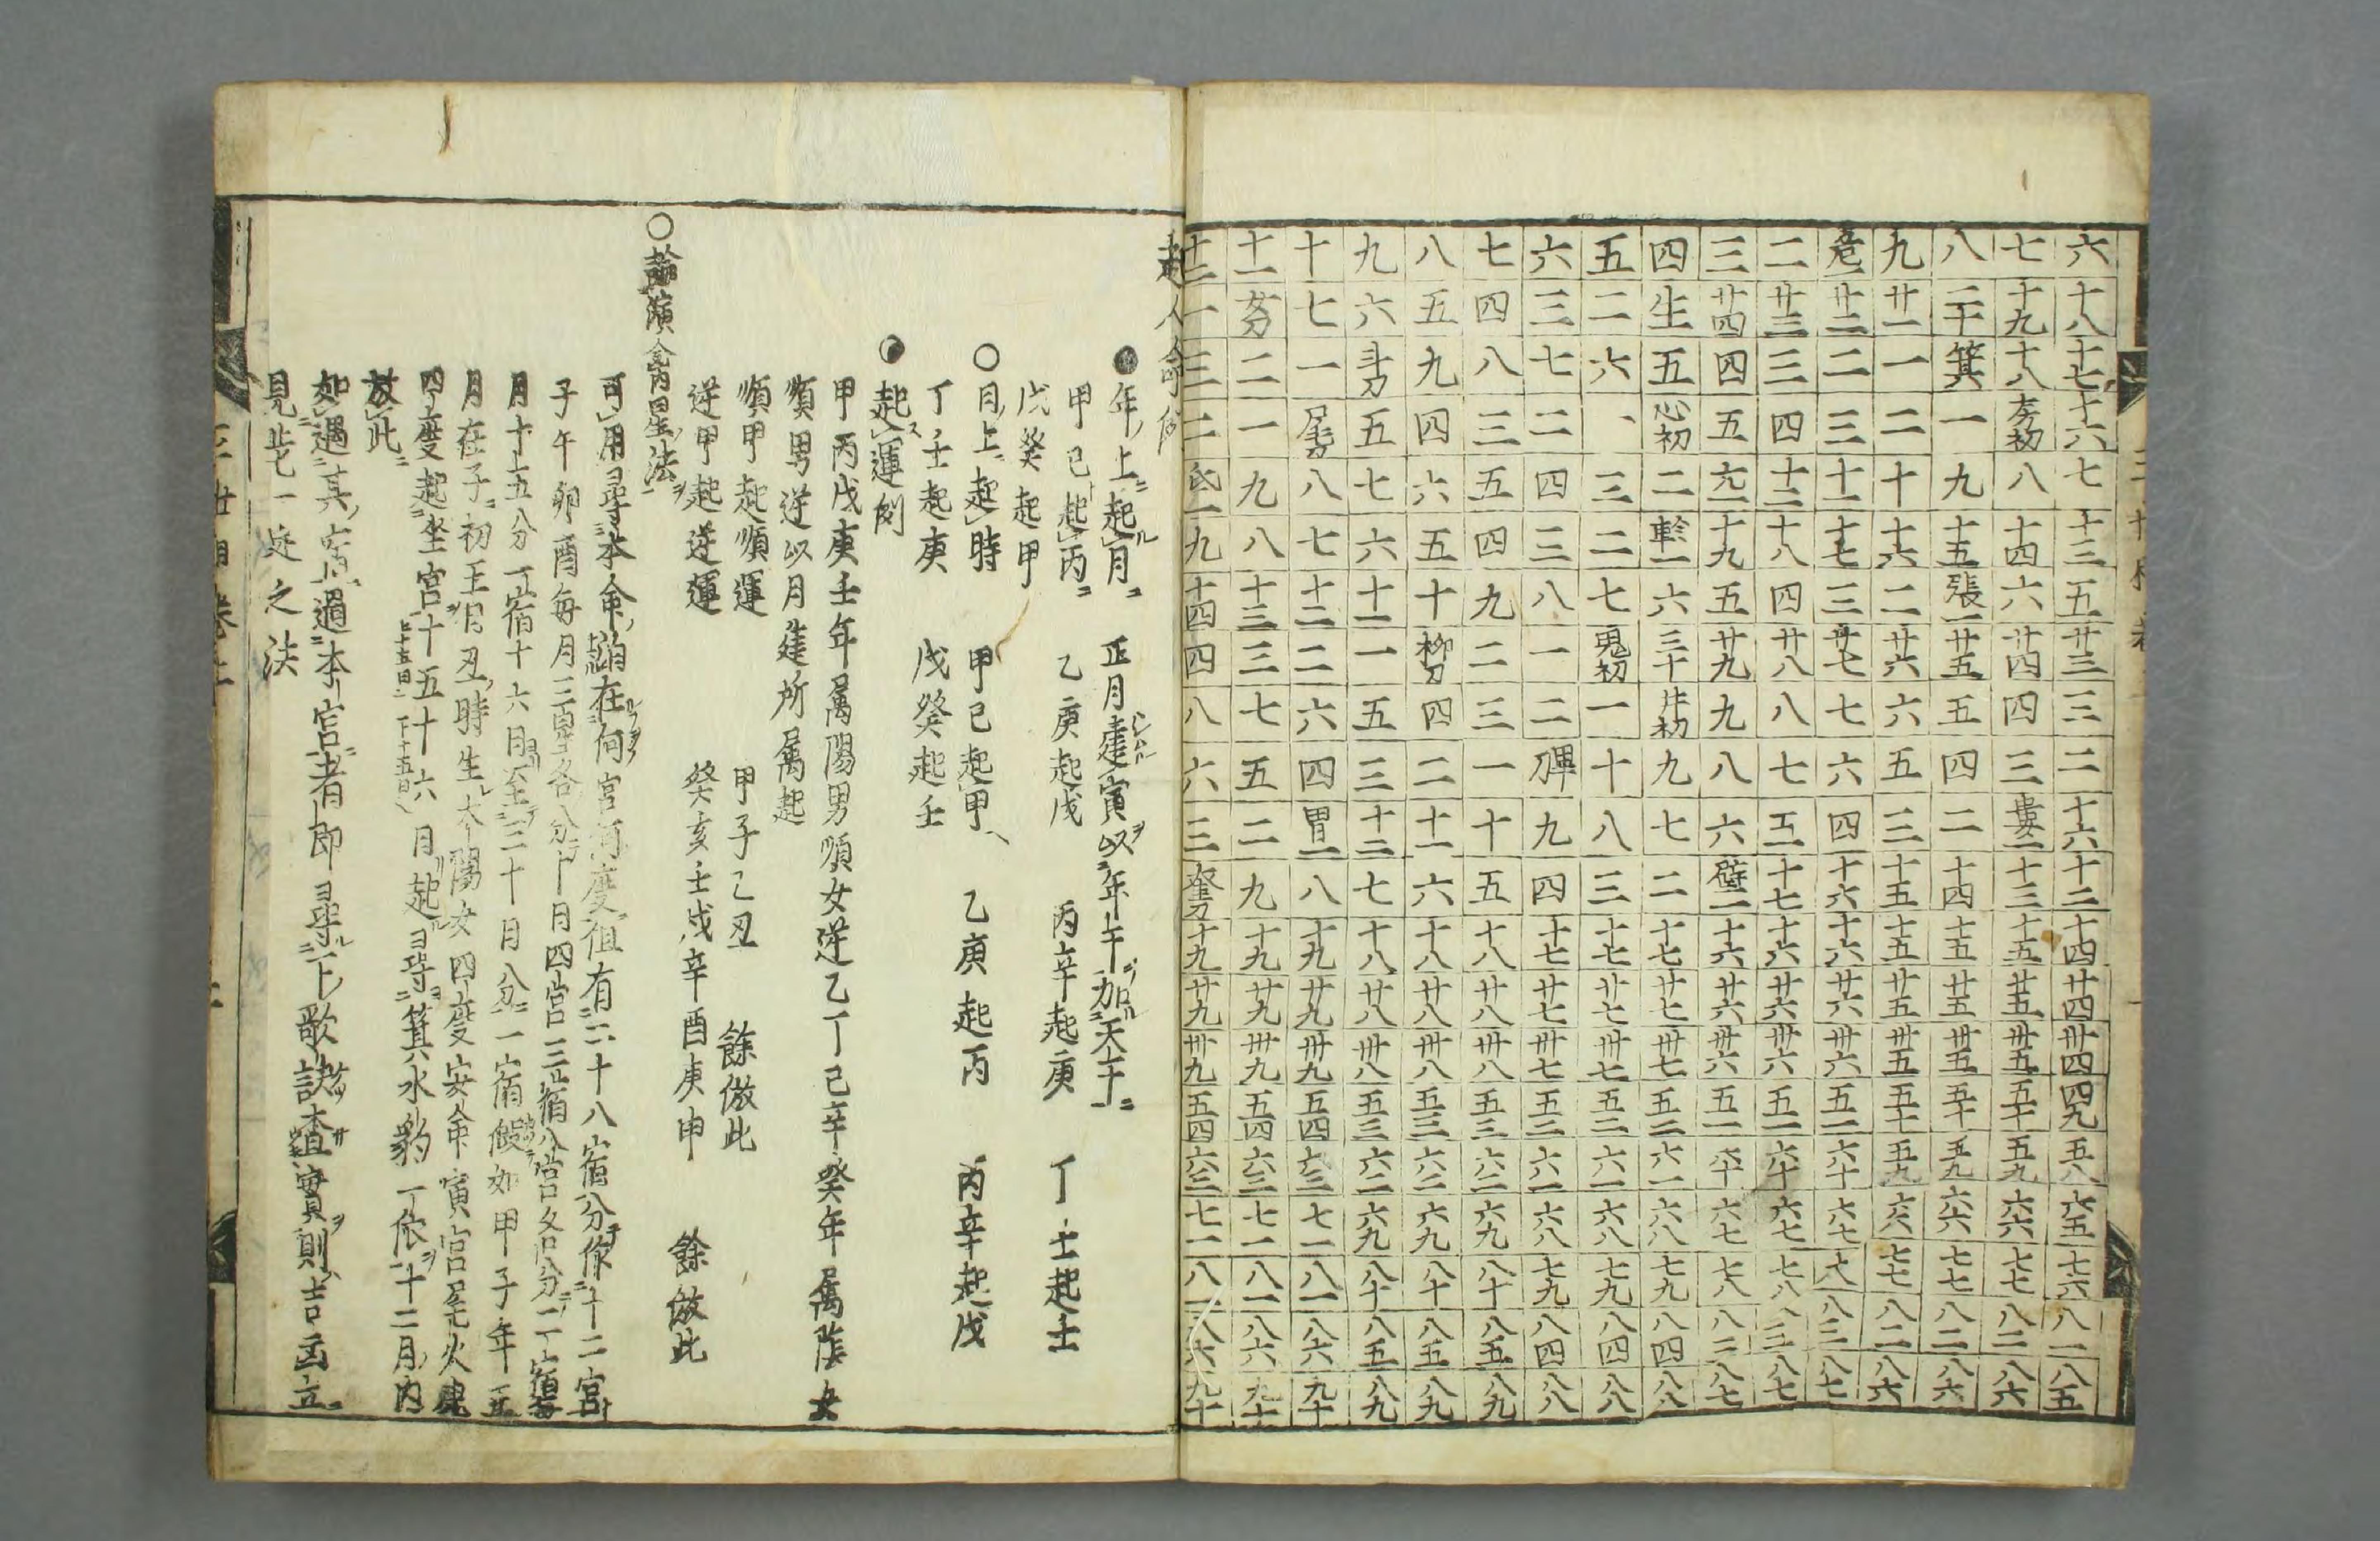 六 十八 十七 十六 七 十三 五 廿三 三 二 十六 十二 十四 廿四 卅四 四九 五八 六五 七六 八一 八五
七 十九 十八 房初 八 十四 六 廿四 四 三 婁一 十三 十五 廿五 卅五 五十 五九 六六 七七 八二 八六
八 二十 箕 一 九 十五 張一 廿五 五 四 二 十四 十五 廿五 卅五 五十 五九 六六 七七 八二 八六
九 廿一 一 二 十 十六 二 廿六 六 五 三 十五 十五 廿五 卅五 五十 五九 六六 七七 八二 八六
危一 廿二 二 三 十一 十七 三 廿七 七 六 四 十六 十六 廿六 卅六 五一 六十 六七 七八 八三 八七
二 廿三 三 四 十二 十八 四 廿八 八 七 五 十七 十六 廿六 卅六 五一 六十 六七 七八 八三 八七
三 廿四 四 五 亢一 十九 五 廿九 九 八 六 壁一 十六 廿六 卅六 五一 六十 六七 七八 八三 八七
四 生 五 心初 二 軫一 六 三十 井初 九 七 二 十七 廿七 卅七 五二 六一 六八 七九 八四 八八
五 二 六 一 三 二 七 鬼初 一 十 八 三 十七 廿七 卅七 五二 六一 六八 七九 八四 八八
六 三 七 二 四 三 八 一 二 畢 九 四 十七 廿七 卅七 五二 六一 六八 七九 八四 八八
七 四 八 三 五 四 九 二 三 一 十 五 十八 廿八 卅八 五三 六二 六九 八十 八五 八九
八 五 九 四 六 五 十 柳初 四 二 十一 六 十八 廿八 卅八 五三 六二 六九 八十 八五 八九
九 六 斗初 五 七 六 十一 一 五 三 十二 七 十八 廿八 卅八 五三 六二 六九 八十 八五 八九
十 七 一 尾初 八 七 十二 二 六 四 胃一 八 十九 廿九 卅九 五四 六三 七一 八一 八六 九十
十一 女初 二 一 九 八 十三 三 七 五 二 九 十九 廿九 卅九 五四 六三 七一 八一 八六 九十
十二 一 三 二 氐一 九 十四 四 八 六 三 奎初 十九 廿九 卅九 五四 六三 七一 八一 八六 九十
起人命例
●年上起月 正月建寅以年午加天干
甲己起丙 乙庚起戊 丙辛起庚 丁壬起壬
戊癸起甲
○日上起時 甲己起甲 乙庚起丙 丙辛起戊
丁壬起庚 戊癸起壬
●起運例
甲丙戊庚壬年屬陽男順女逆乙丁己辛癸年屬陰女
順男逆以月建所屬起
順甲起順運 甲子乙丑 餘倣此
逆甲起逆運 癸亥壬戌辛酉庚申 餘倣此
○論演禽宿星法
可用尋本命 在何宮何度徂有二十八宿分作十二宮
子午卯酉每月三宿各分十月四宮三宿八宮各分二丁宿
月十五分一宿十六日至三十月分一宿假如甲子年正
月在子初王月丑時生太陽女四度安命寅宮尾火虎
四度起坐宮十五十六月起尋箕水豹丁依十二月內
放此
如過其宿過本宮者即尋下歌訣查實則吉凶立
見此一定之法